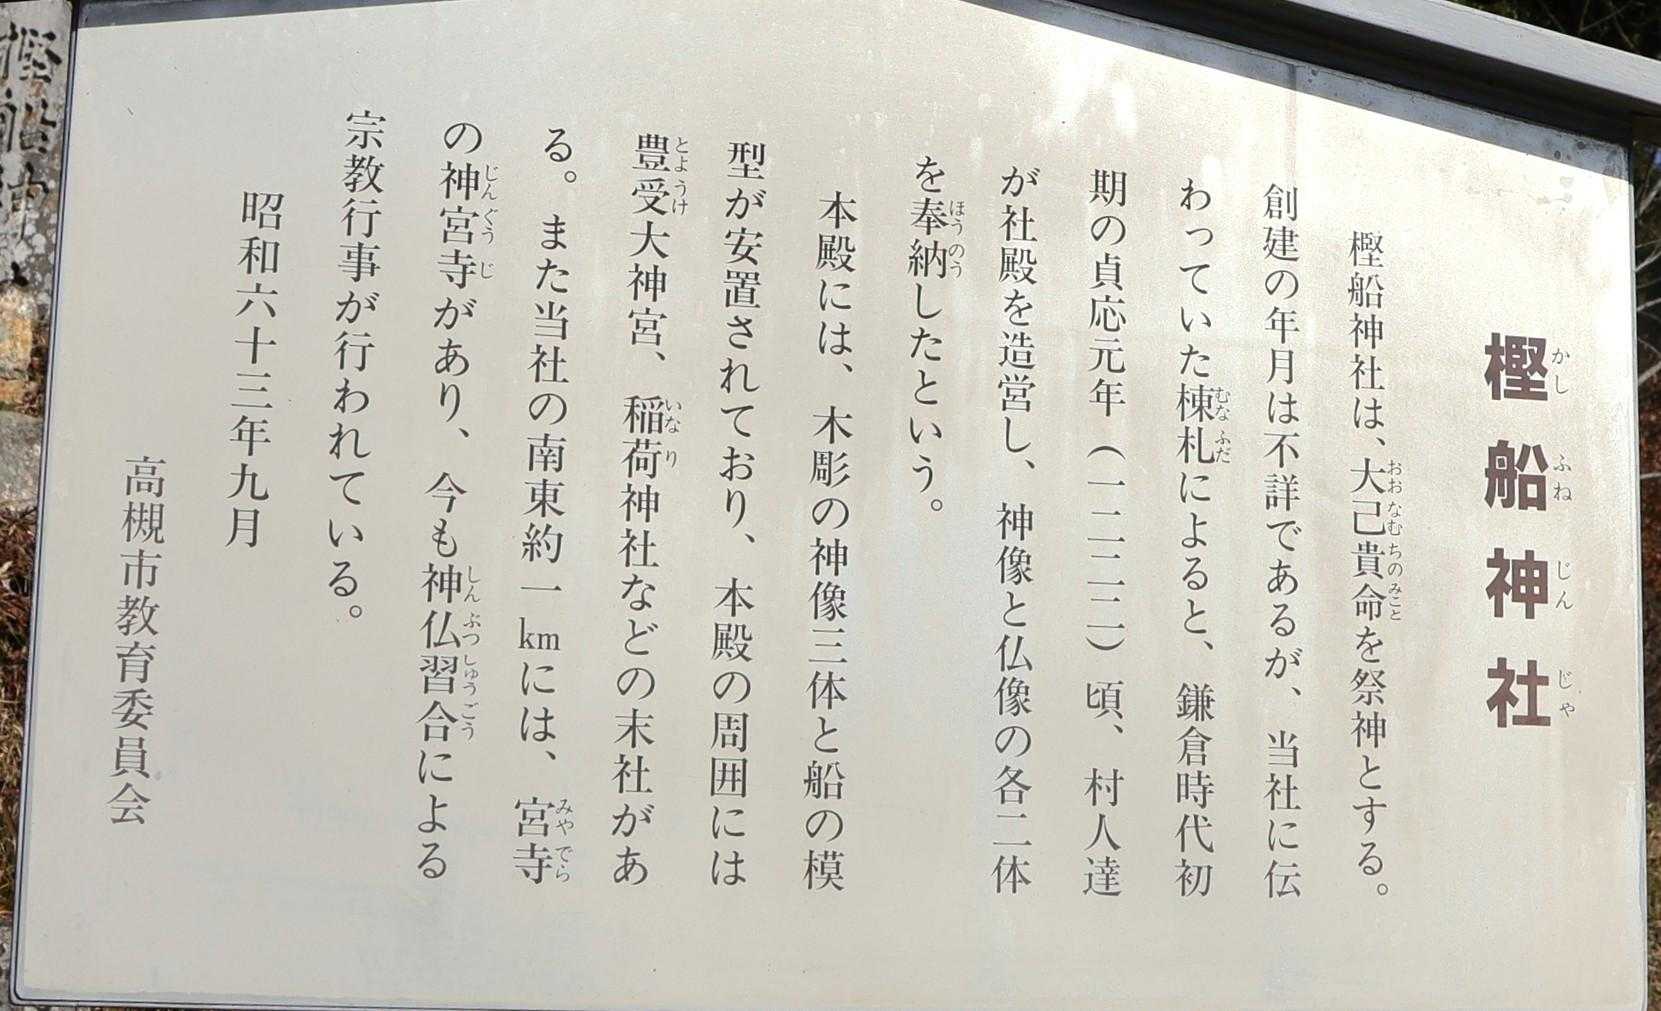 樫船神社
樫船神社は、大己貴命を祭神とする。
創建の年月は不詳であるが、当社に伝
わっていた棟札によると、鎌倉時代初
期の貞応元年（一二二二）頃、村人達
が社殿を造営し、神像と仏像の各二体
を奉納したという。
本殿には、木彫の神像三体と船の模
型が安置されており、本殿の周囲には
豊受大神宮、稲荷神社などの末社があ
る。また当社の南東約一kmには、宮寺
の神宮寺があり、今も神仏習合による
宗教行事が行われている。
昭和六十三年九月
高槻市教育委員会
樫船神